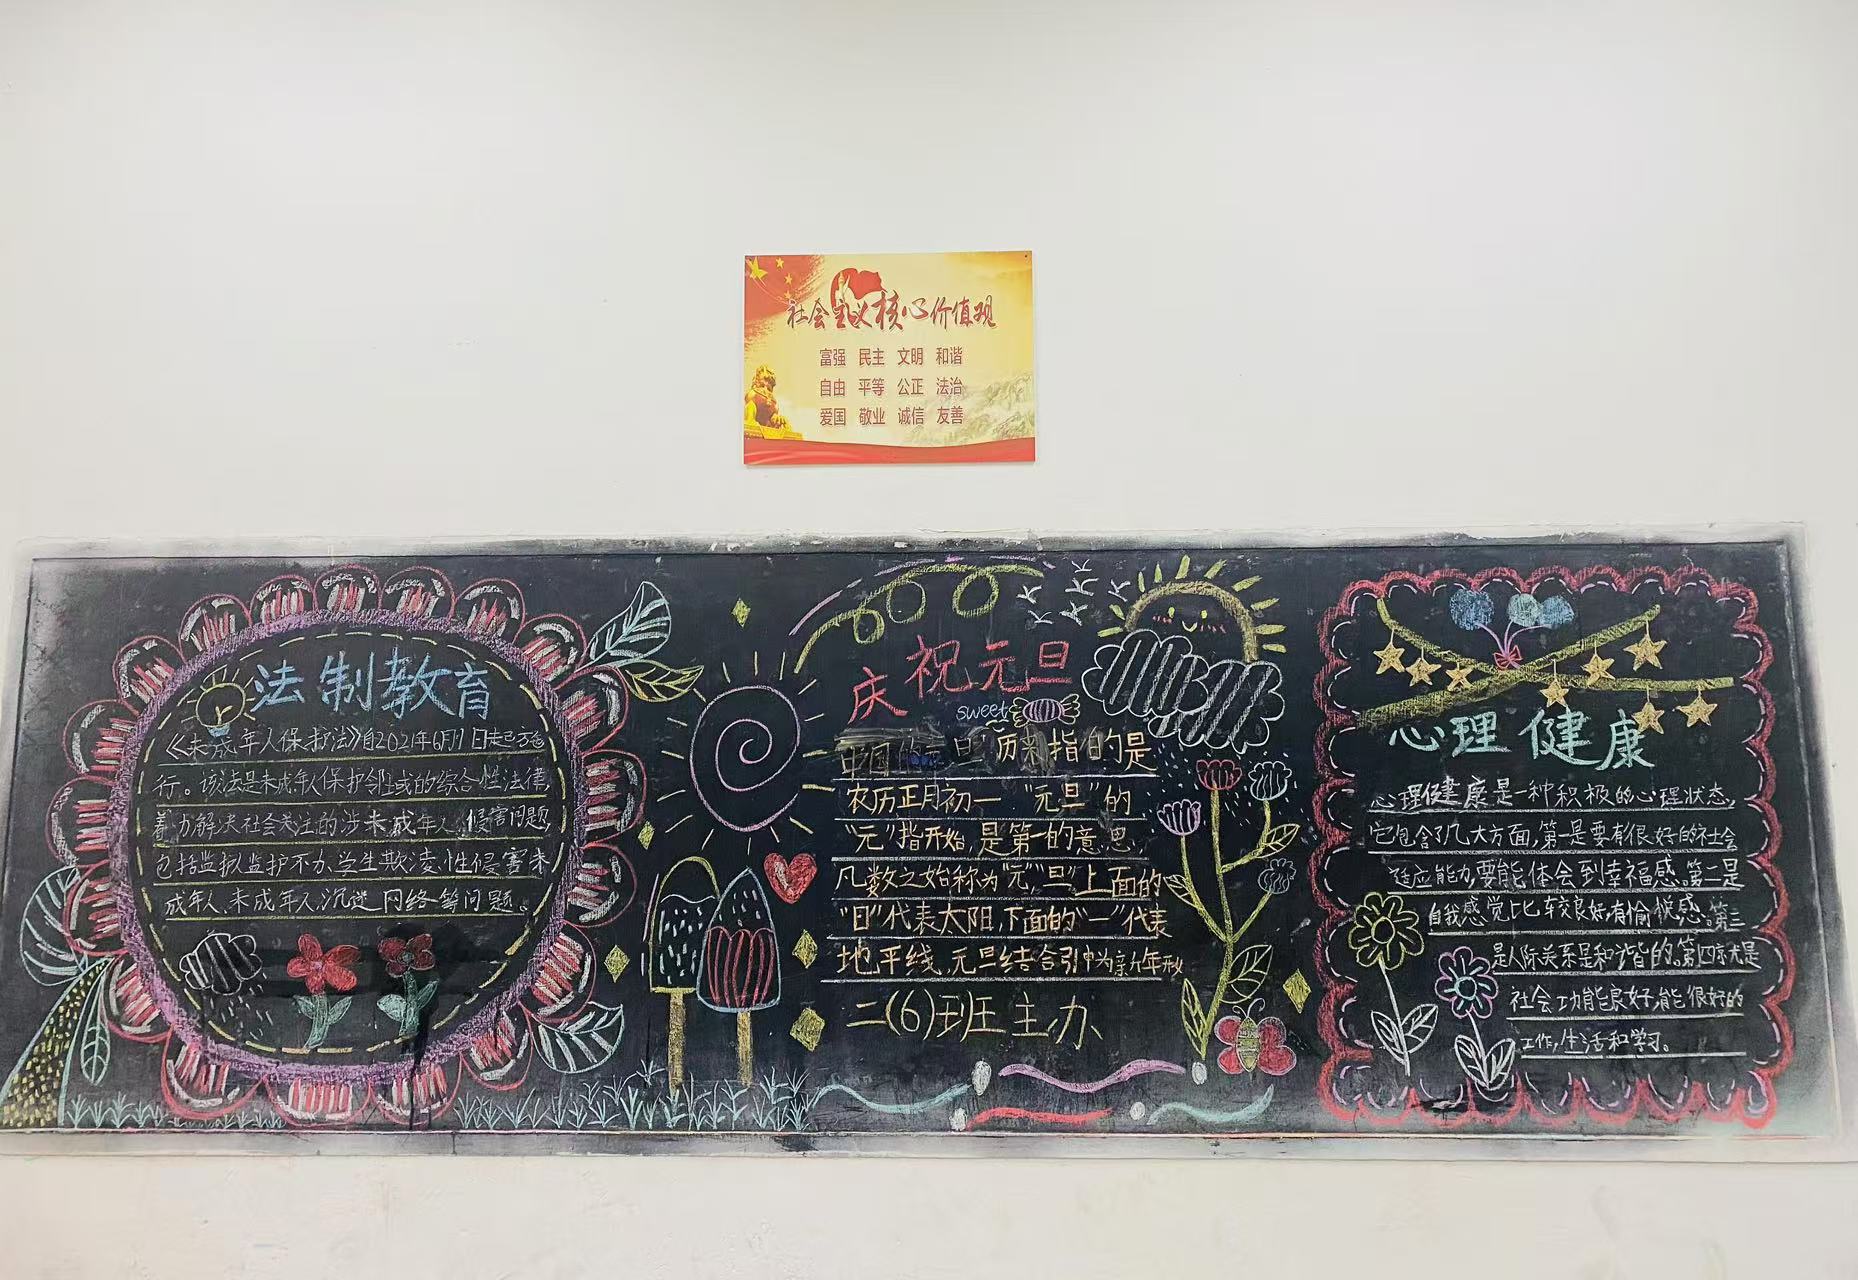 社会主义核心价值观
富强 民主 文明 和谐
自由 平等 公正 法治
爱国 敬业 诚信 友善
法制教育
《未成年人保护法》自2021年6月1日起
行。该法是未成年人保护领域的综合性法律
着力解决社会关注的涉未成年人侵害问题,
包括监护人监护不力、学生欺凌、性侵害未
成年人、未成年人沉迷网络等问题。
庆祝元旦
sweet
中国的元旦 历来指的是
农历正月初一 "元旦"的
"元"指开始,是第一的意思,
凡数之始称为"元""旦"上面的
"日"代表太阳,下面的"一"代表
地平线,元旦结合引申为新年
二(6)班主办
心理健康
心理健康是一种积极的心理状态,
它包含了几大方面,第一是要有很好的社会
适应能力,要能体会到幸福感。第二是
自我感觉比较良好,有愉悦感。第三
是人际关系是和谐的。第四就是
社会功能良好,能很好的
工作,生活和学习。